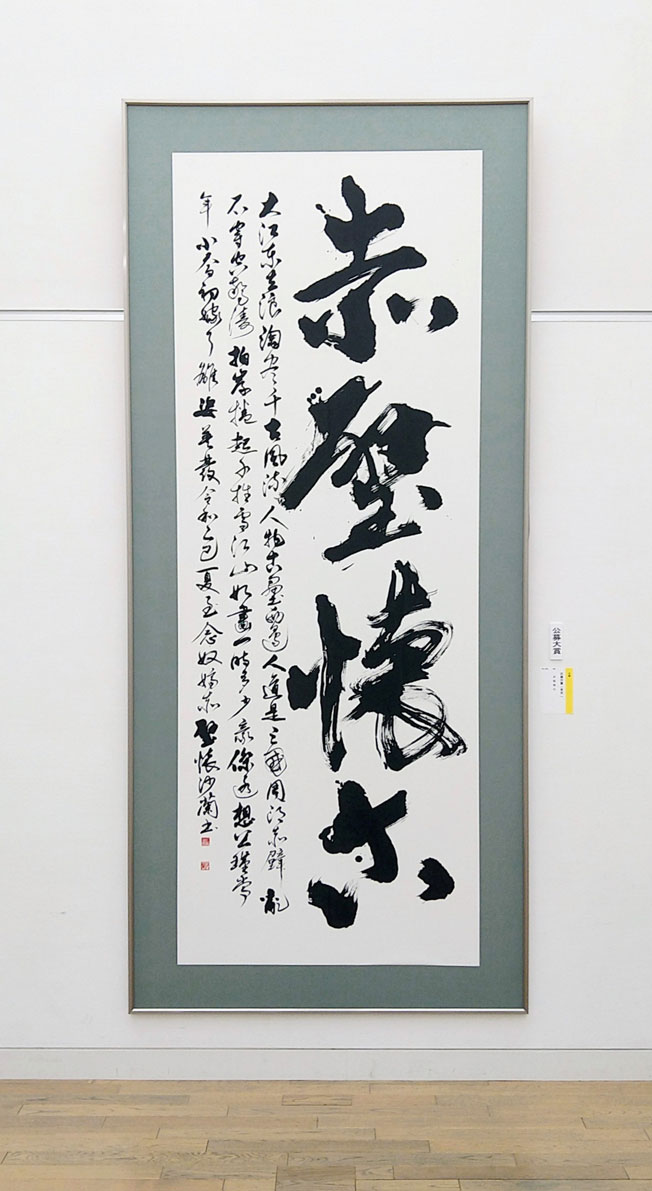 赤壁懐古
大江東去浪淘尽千古風流人物古壘西邊人道是三國周郎赤壁亂
石穿空驚濤拍岸捲起千堆雪江山如畫一時多少豪傑遥想公瑾當
年小喬初嫁了雄姿英發令和乙巳夏至念奴嬌赤壁懐沙蘭書
公募大賞